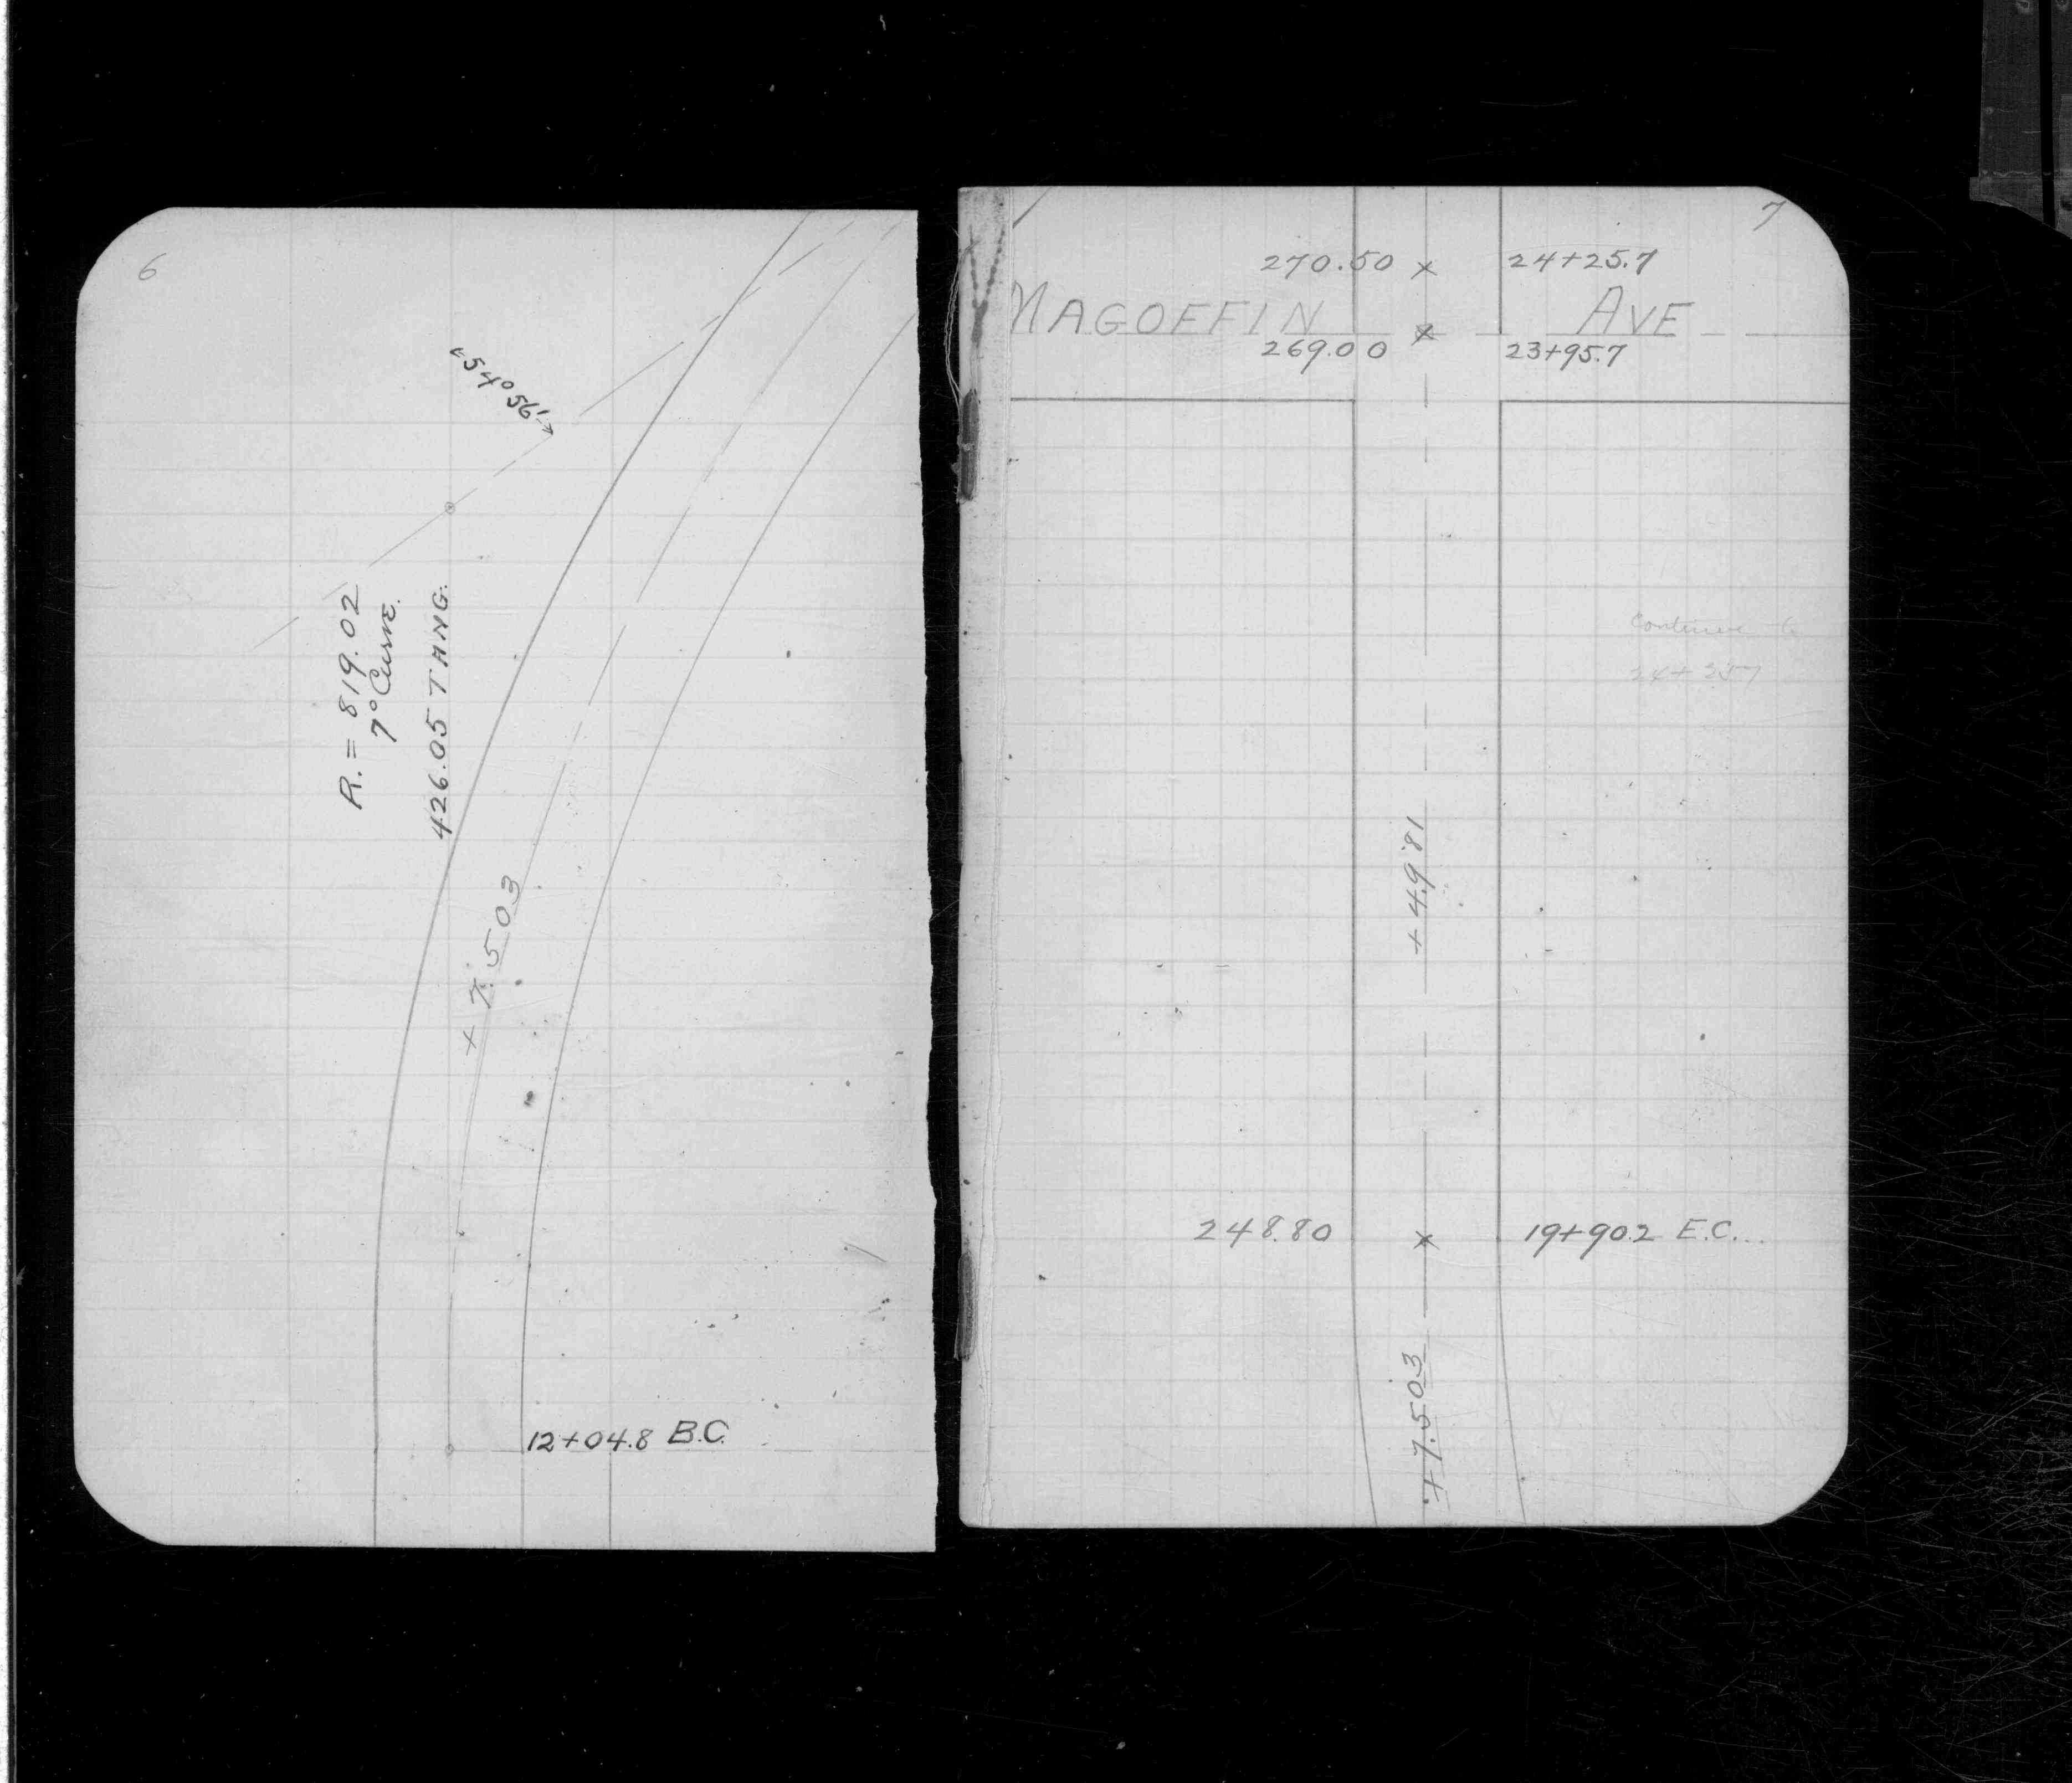 6
54°56'
R. = 819.02
7° Curve.
426.05 TANG.
+ 7.503
12+04.8 B.C.
7
270.50 x 24+25.7
MAGOFFIN AVE
269.00 x 23+95.7
Continue to
+ 4.981
248.80 x 19+90.2 E.C...
+7.503